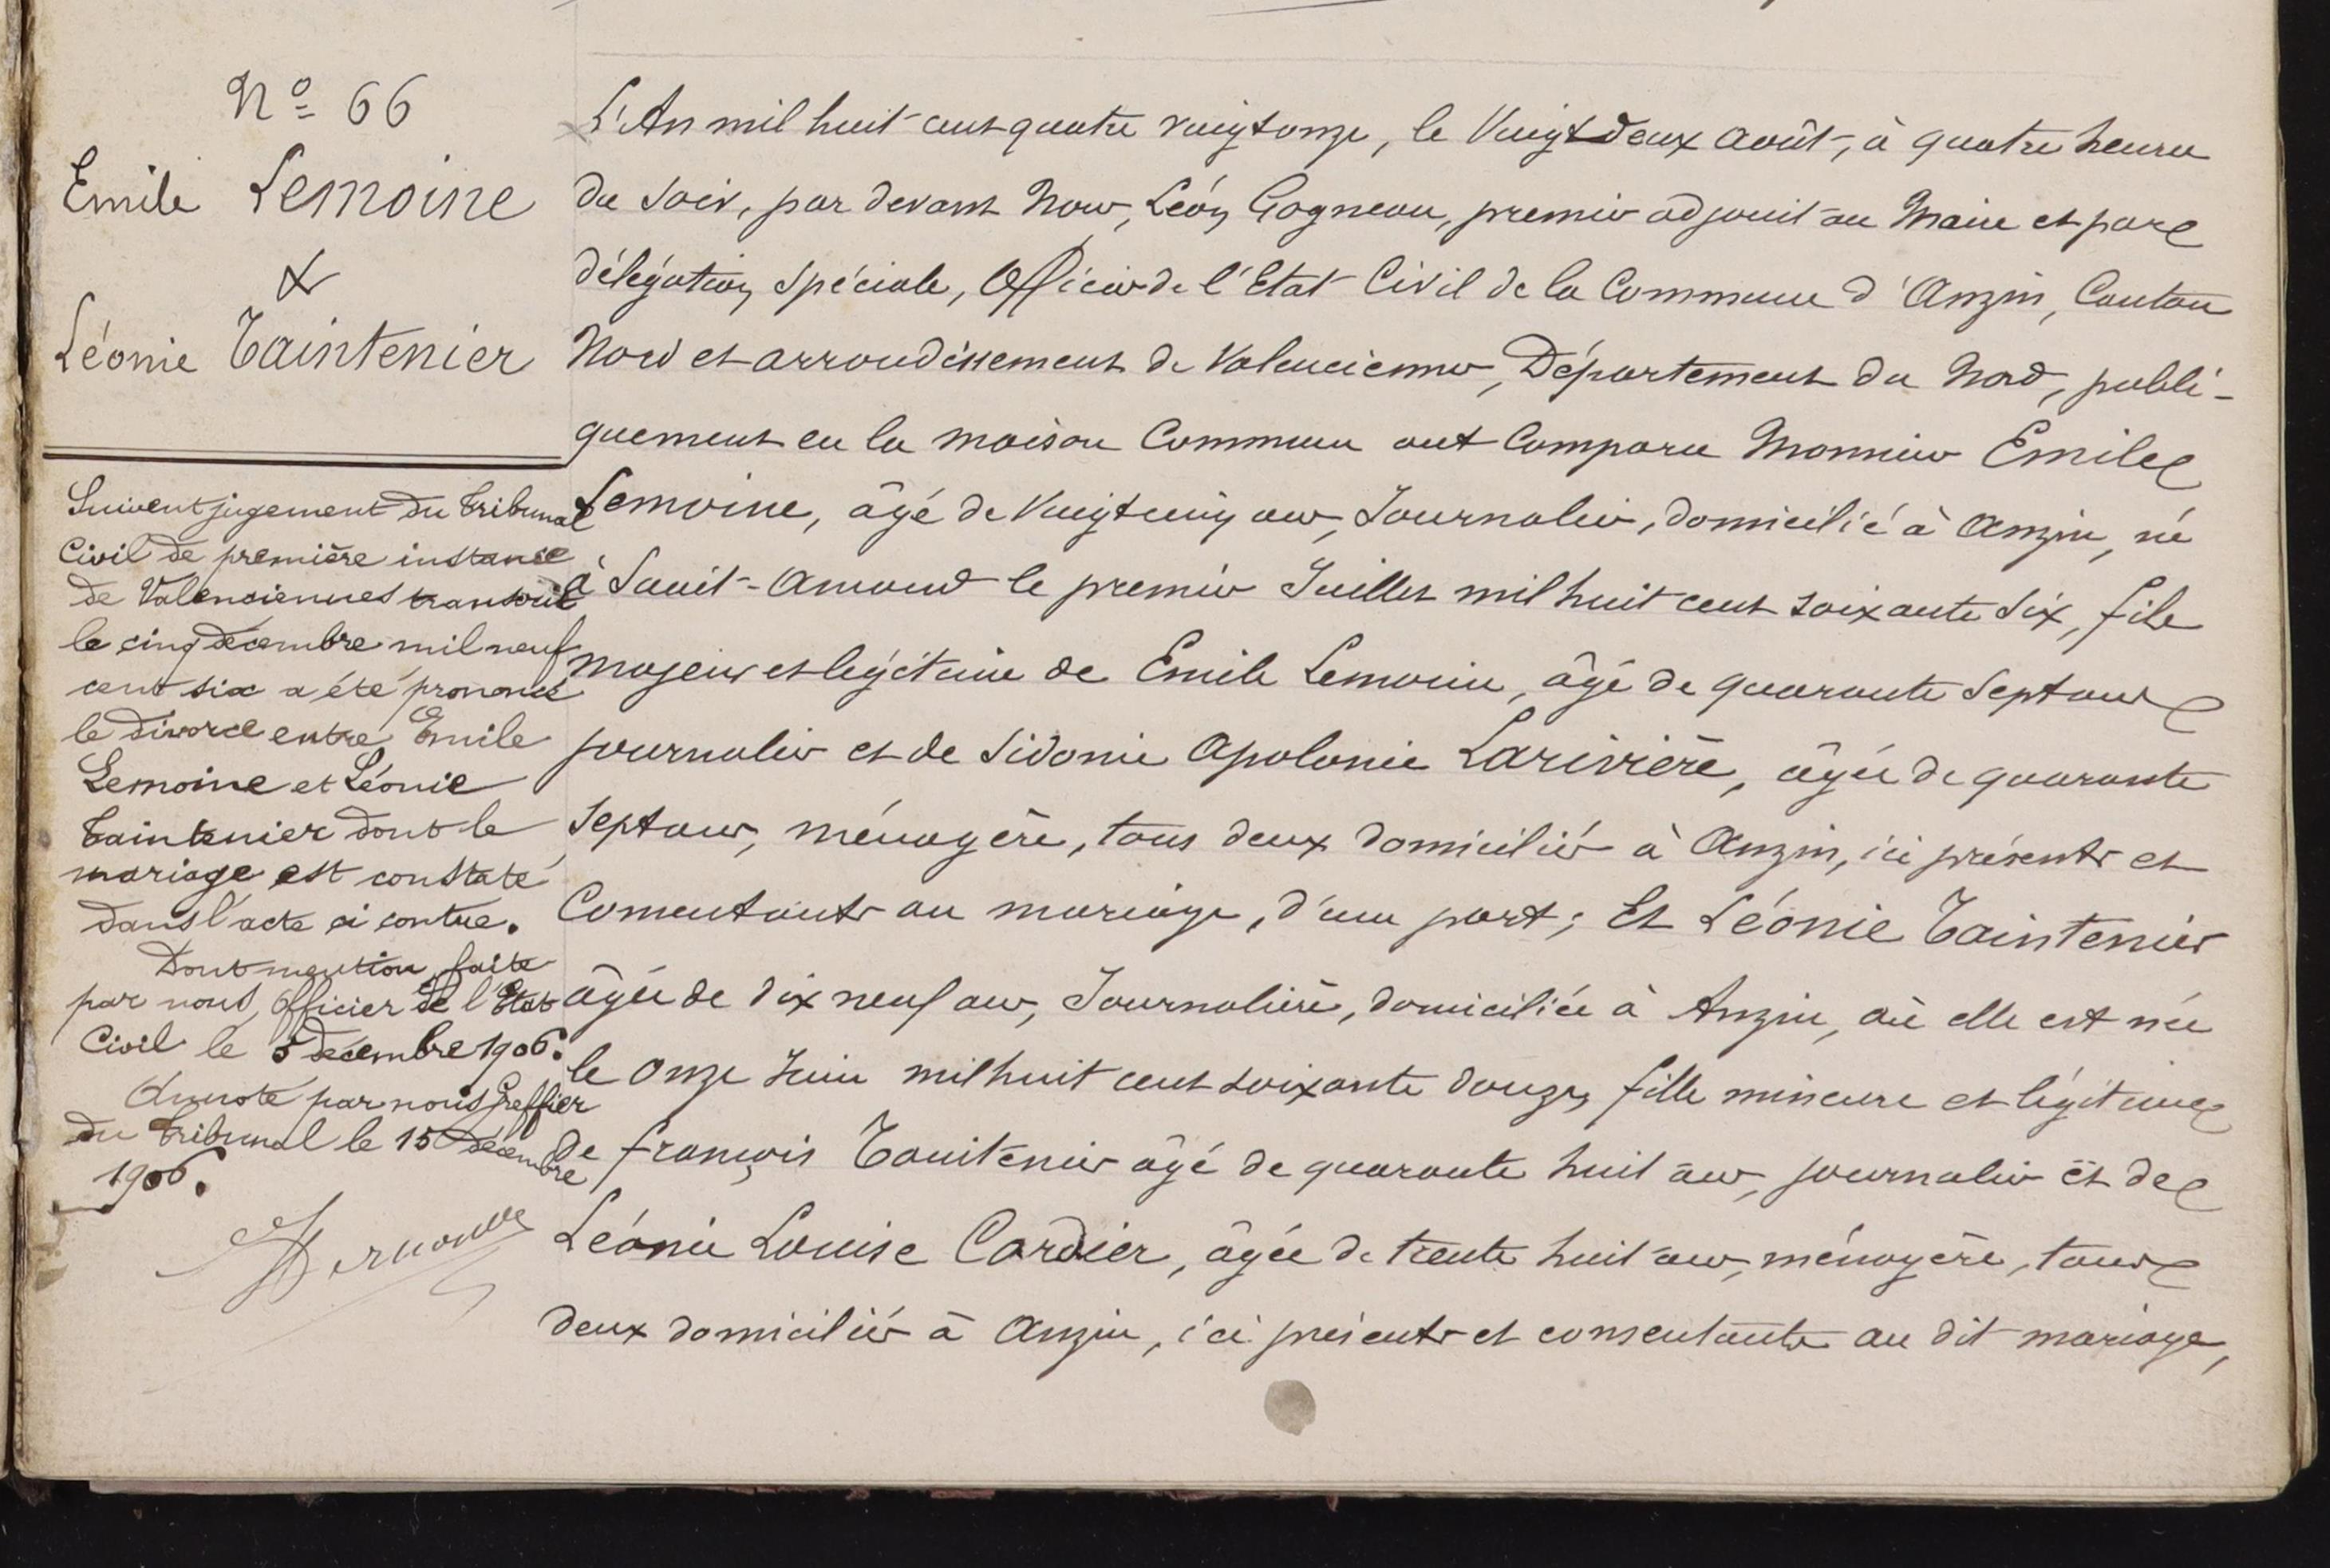 Nº 66
Emile Lemoine
&
Léonie Taintenier
Suivent jugement du Tribunal
Civil de première instance
de Valenciennes transcrit
le cinq décembre mil neuf
cent six a été prononcé
le divorce entre Emile
Lemoine et Léonie
Taintenier dont le
mariage est constaté
dans l'acte ci contre.
Dont mention faite
par nous, Officier de l'Etat
Civil le 5 décembre 1906.
Annoté par nous Greffier
du Tribunal le 15 décembre
1906.
L'An mil huit cent quatre vingt onze, le Vingt deux Août, à quatre heures
du soir, par devant Nous, Léon Gagneau, premier adjoint au Maire et par
délégation spéciale, Officier de l'Etat Civil de la Commune d'Anzin, Canton
Nord et arrondissement de Valenciennes, Département du Nord, publi-
quement en la maison Commune ont Comparu Monsieur Emile
Lemoine, âgé de Vingt cinq ans, Journalier, domicilié à Anzin, né
à Saint-Amand le premier Juillet mil huit cent soixante six, fils
majeur et légitime de Emile Lemoine, âgé de quarante sept ans
journalier et de Sidonie Apolonie Larivière, âgée de quarante
sept ans, ménagère, tous deux domiciliés à Anzin, ici présents et
Consentants au mariage, d'une part; Et Léonie Taintenier
âgée de dix neuf ans, Journalière, domiciliée à Anzin, où elle est née
le onze Juin mil huit cent soixante douze, fille mineure et légitime
de françois Taintenier âgé de quarante huit ans, journalier et de
Léonie Louise Cardier, âgée de trente huit ans, ménagère, tous
deux domiciliés à Anzin, ici présents et consentants au dit mariage,